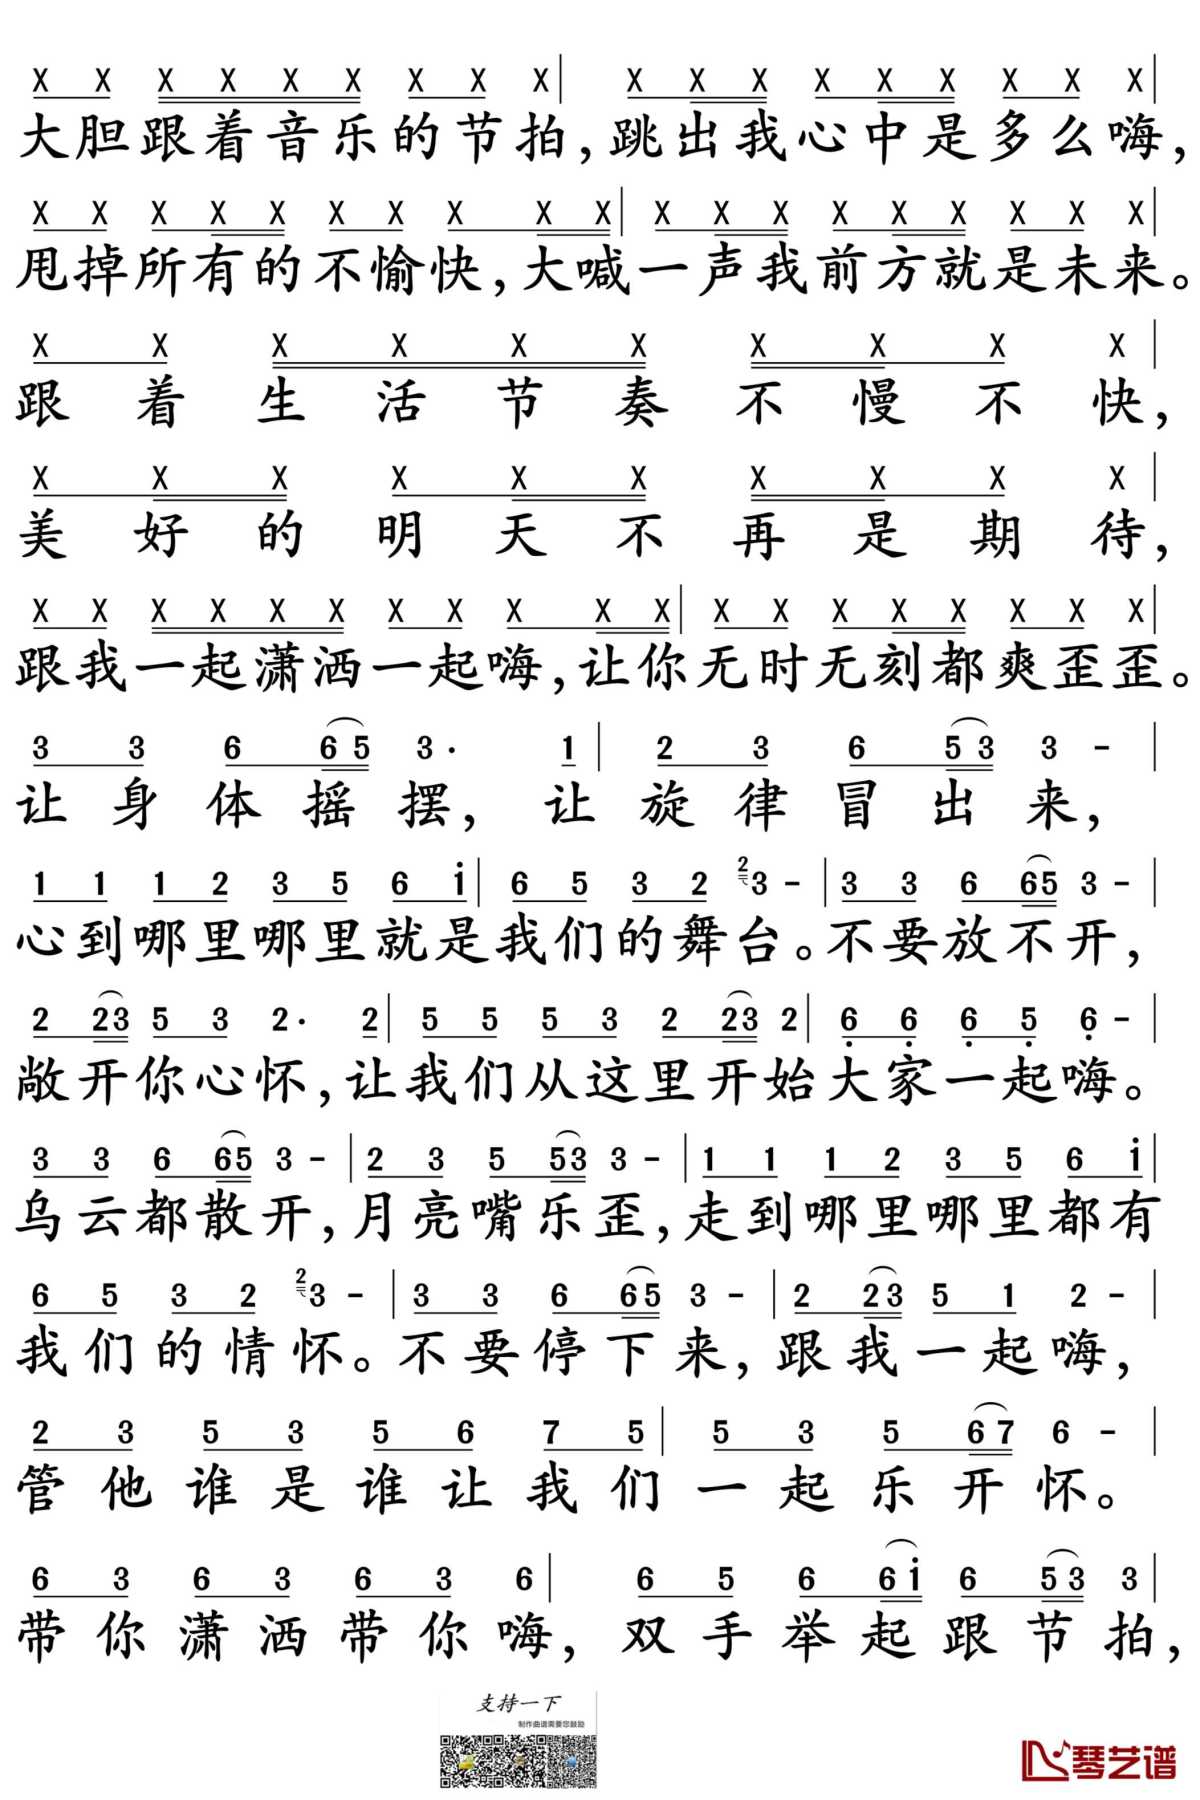 X X X X X X X X X | X X X X X X X X X |
大胆跟着音乐的节拍,跳出我心中是多么嗨,
X X X X X X X X X X | X X X X X X X X X |
甩掉所有的不愉快,大喊一声我前方就是未来。
X X X X X X X X X X |
跟着生活节奏不慢不快,
X X X X X X X X X X |
美好的明天不再是期待,
X X X X X X X X X X X | X X X X X X X X X |
跟我一起潇洒一起嗨,让你无时无刻都爽歪歪。
3 3 6 6 5 3 · 1 | 2 3 6 5 3 3 - |
让身体摇摆,让旋律冒出来,
1 1 1 2 3 5 6 i | 6 5 3 2 2 3 - | 3 3 6 6 5 3 - |
心到哪里哪里就是我们的舞台。不要放不开,
2 2 3 5 3 2 · 2 | 5 5 5 3 2 2 3 2 | 6 6 6 5 6 - |
敞开你心怀,让我们从这里开始大家一起嗨。
3 3 6 6 5 3 - | 2 3 5 5 3 3 - | 1 1 1 2 3 5 6 i |
乌云都散开,月亮嘴乐歪,走到哪里哪里都有
6 5 3 2 2 3 - | 3 3 6 6 5 3 - | 2 2 3 5 1 2 - |
我们的情怀。不要停下来,跟我一起嗨,
2 3 5 3 5 6 7 5 | 5 3 5 6 7 6 - |
管他谁是谁让我们一起乐开怀。
6 3 6 3 6 3 6 | 6 5 6 6 i 6 5 3 3 |
带你潇洒带你嗨,双手举起跟节拍,
支持一下
制作曲谱需要您鼓励
琴艺谱